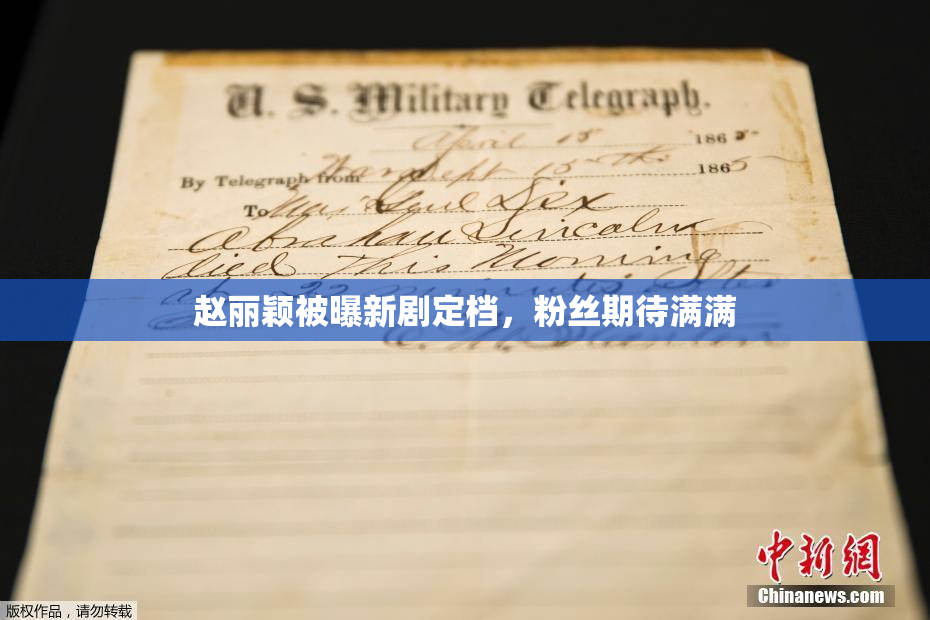 U. S. Military Telegraph.
April 15 1865
By Telegraph from War Dept 15th 1865
To Maj Genl Dix
Abraham Lincoln
died This Morning
赵丽颖被曝新剧定档，粉丝期待满满
中新网
Chinanews.com
版权作品，请勿转载